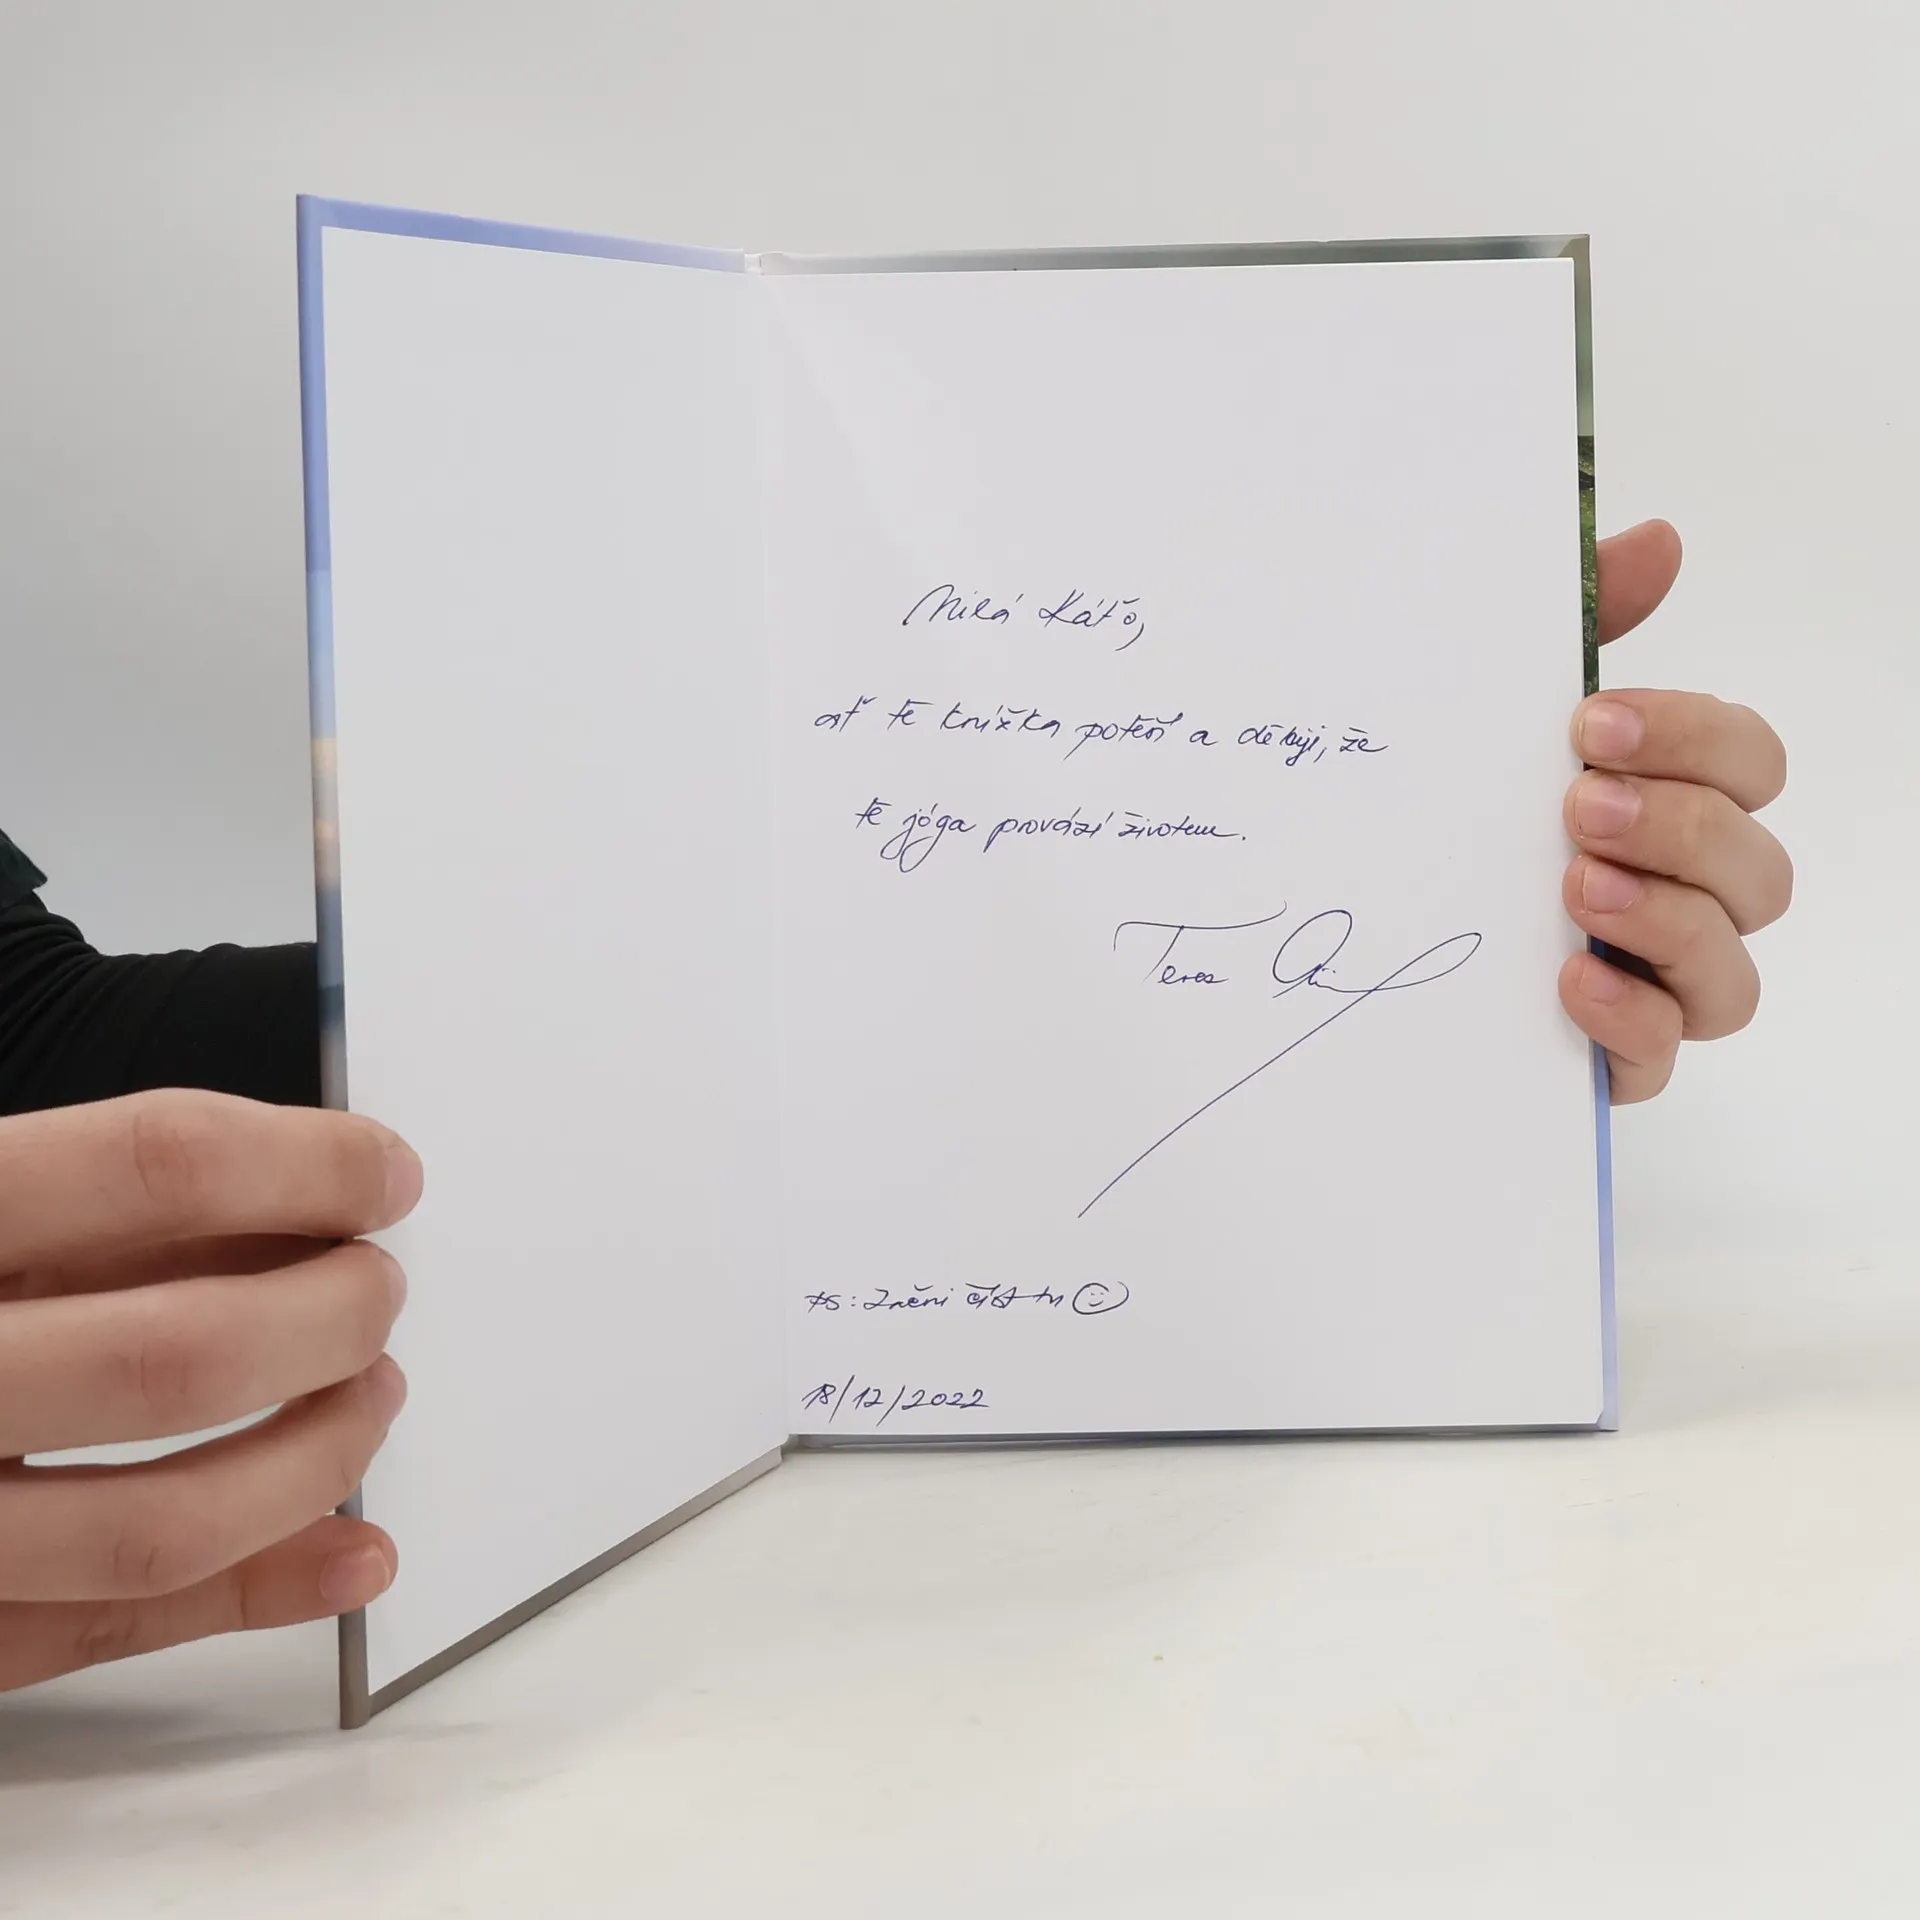 Milá Káťo,
ať tě knížka potěší a děkuji, že
tě jóga provází životem.
Tereza
PS: Začni číst tu ☺
18/12/2022